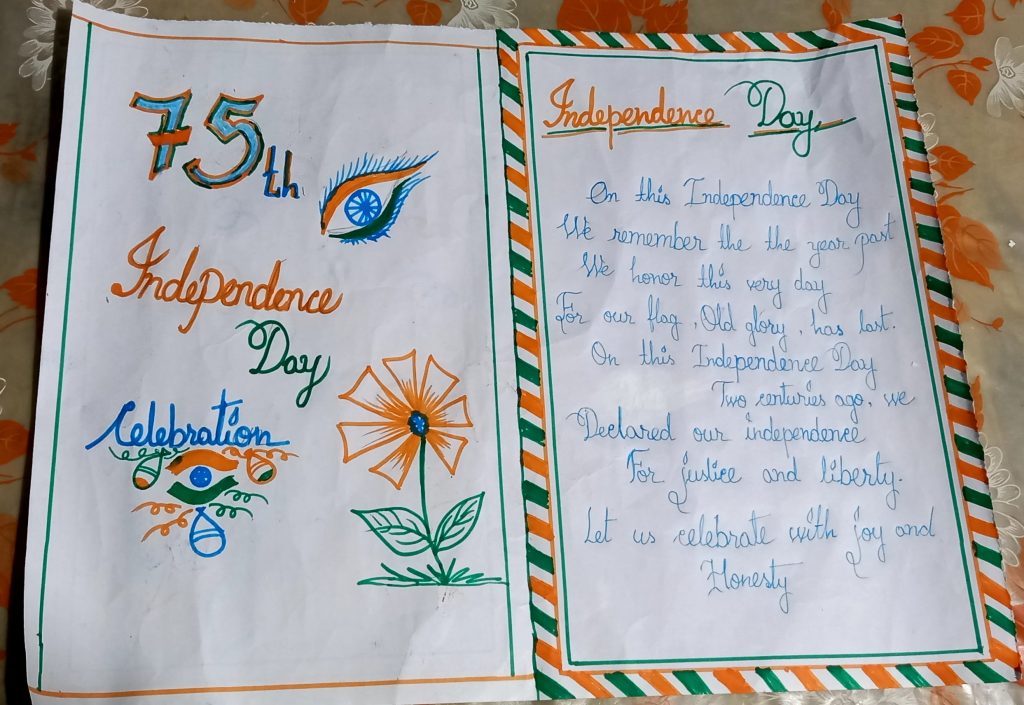 75th
Independence
Day
Celebration
Independence Day
On this Independence Day
We remember the the year past
We honor this very day
For our flag, Old glory, has last.
On this Independence Day
Two centuries ago, we
Declared our independence
For justice and liberty.
Let us celebrate with joy and
Honesty